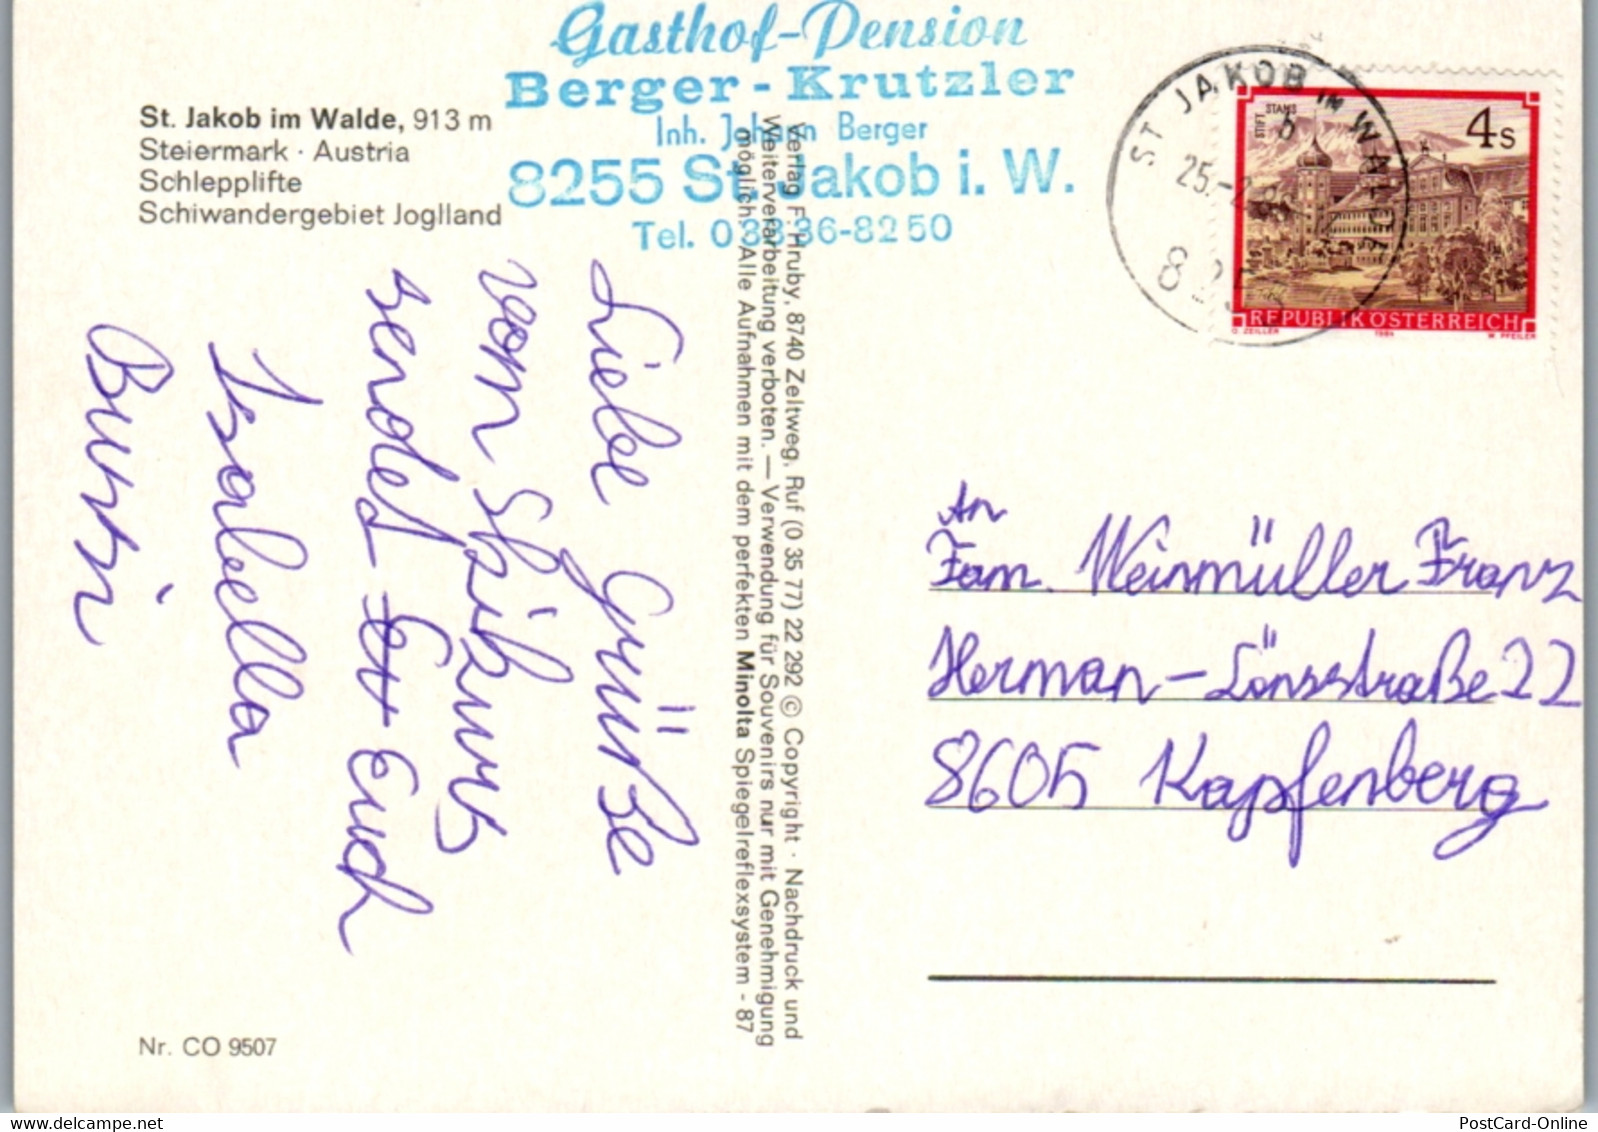 Gasthof-Pension
Berger-Krutzler
Inh. Johann Berger
8255 St. Jakob i. W.
Tel. 03336-8250
St. Jakob im Walde, 913 m
Steiermark · Austria
Schlepplifte
Schiwandergebiet Joglland
ST JAKOB IM WALDE
b
25.-2.
STIFT STAMS
4s
REPUBLIK ÖSTERREICH
O. ZEILLER 1984 W. PFEILER
Liebe Grüße
vom Schikurs
sendet Euch
Isabella
Burtzi
Verlag F. Hruby, 8740 Zeltweg, Ruf (0 35 77) 22 292 © Copyright · Nachdruck und
Weiterverarbeitung verboten. — Verwendung für Souvenirs nur mit Genehmigung
möglich. Alle Aufnahmen mit dem perfekten Minolta Spiegelreflexsystem - 87
An
Fam. Weinmüller Franz
Herman-Lönsstraße 22
8605 Kapfenberg
Nr. CO 9507
PostCard-Online